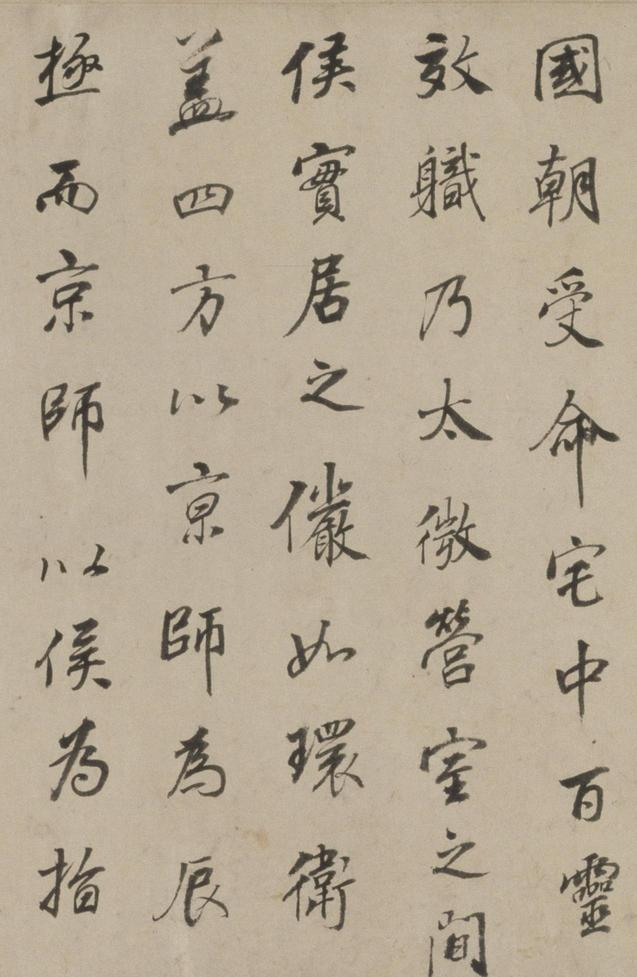 國朝受命宅中百靈
效職乃太微營室之間
侯實居之儼如環衛
蓋四方以京師為辰
極而京師以侯為指